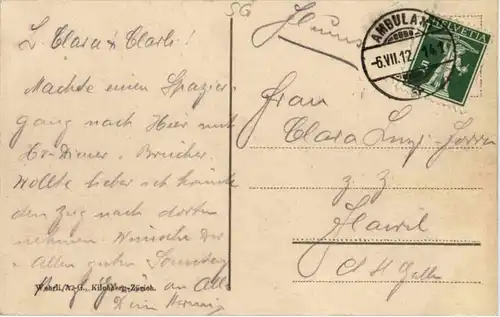 SG
L. Clara & Carli!
Machte einen Spazier-
gang nach Hier mit
Hr. Diener, Brucher.
Wollte lieber ich könnte
den Zug nach dorten
nehmen. Wünsche Dir
Allen guten Sonntag
an All
Dein
Wehrli, A.-G., Kilchberg-Zürich.
AMBULANT
-6.VII.12
HELVETIA
Frau
Clara
z. z.
Flawil
St Gallen